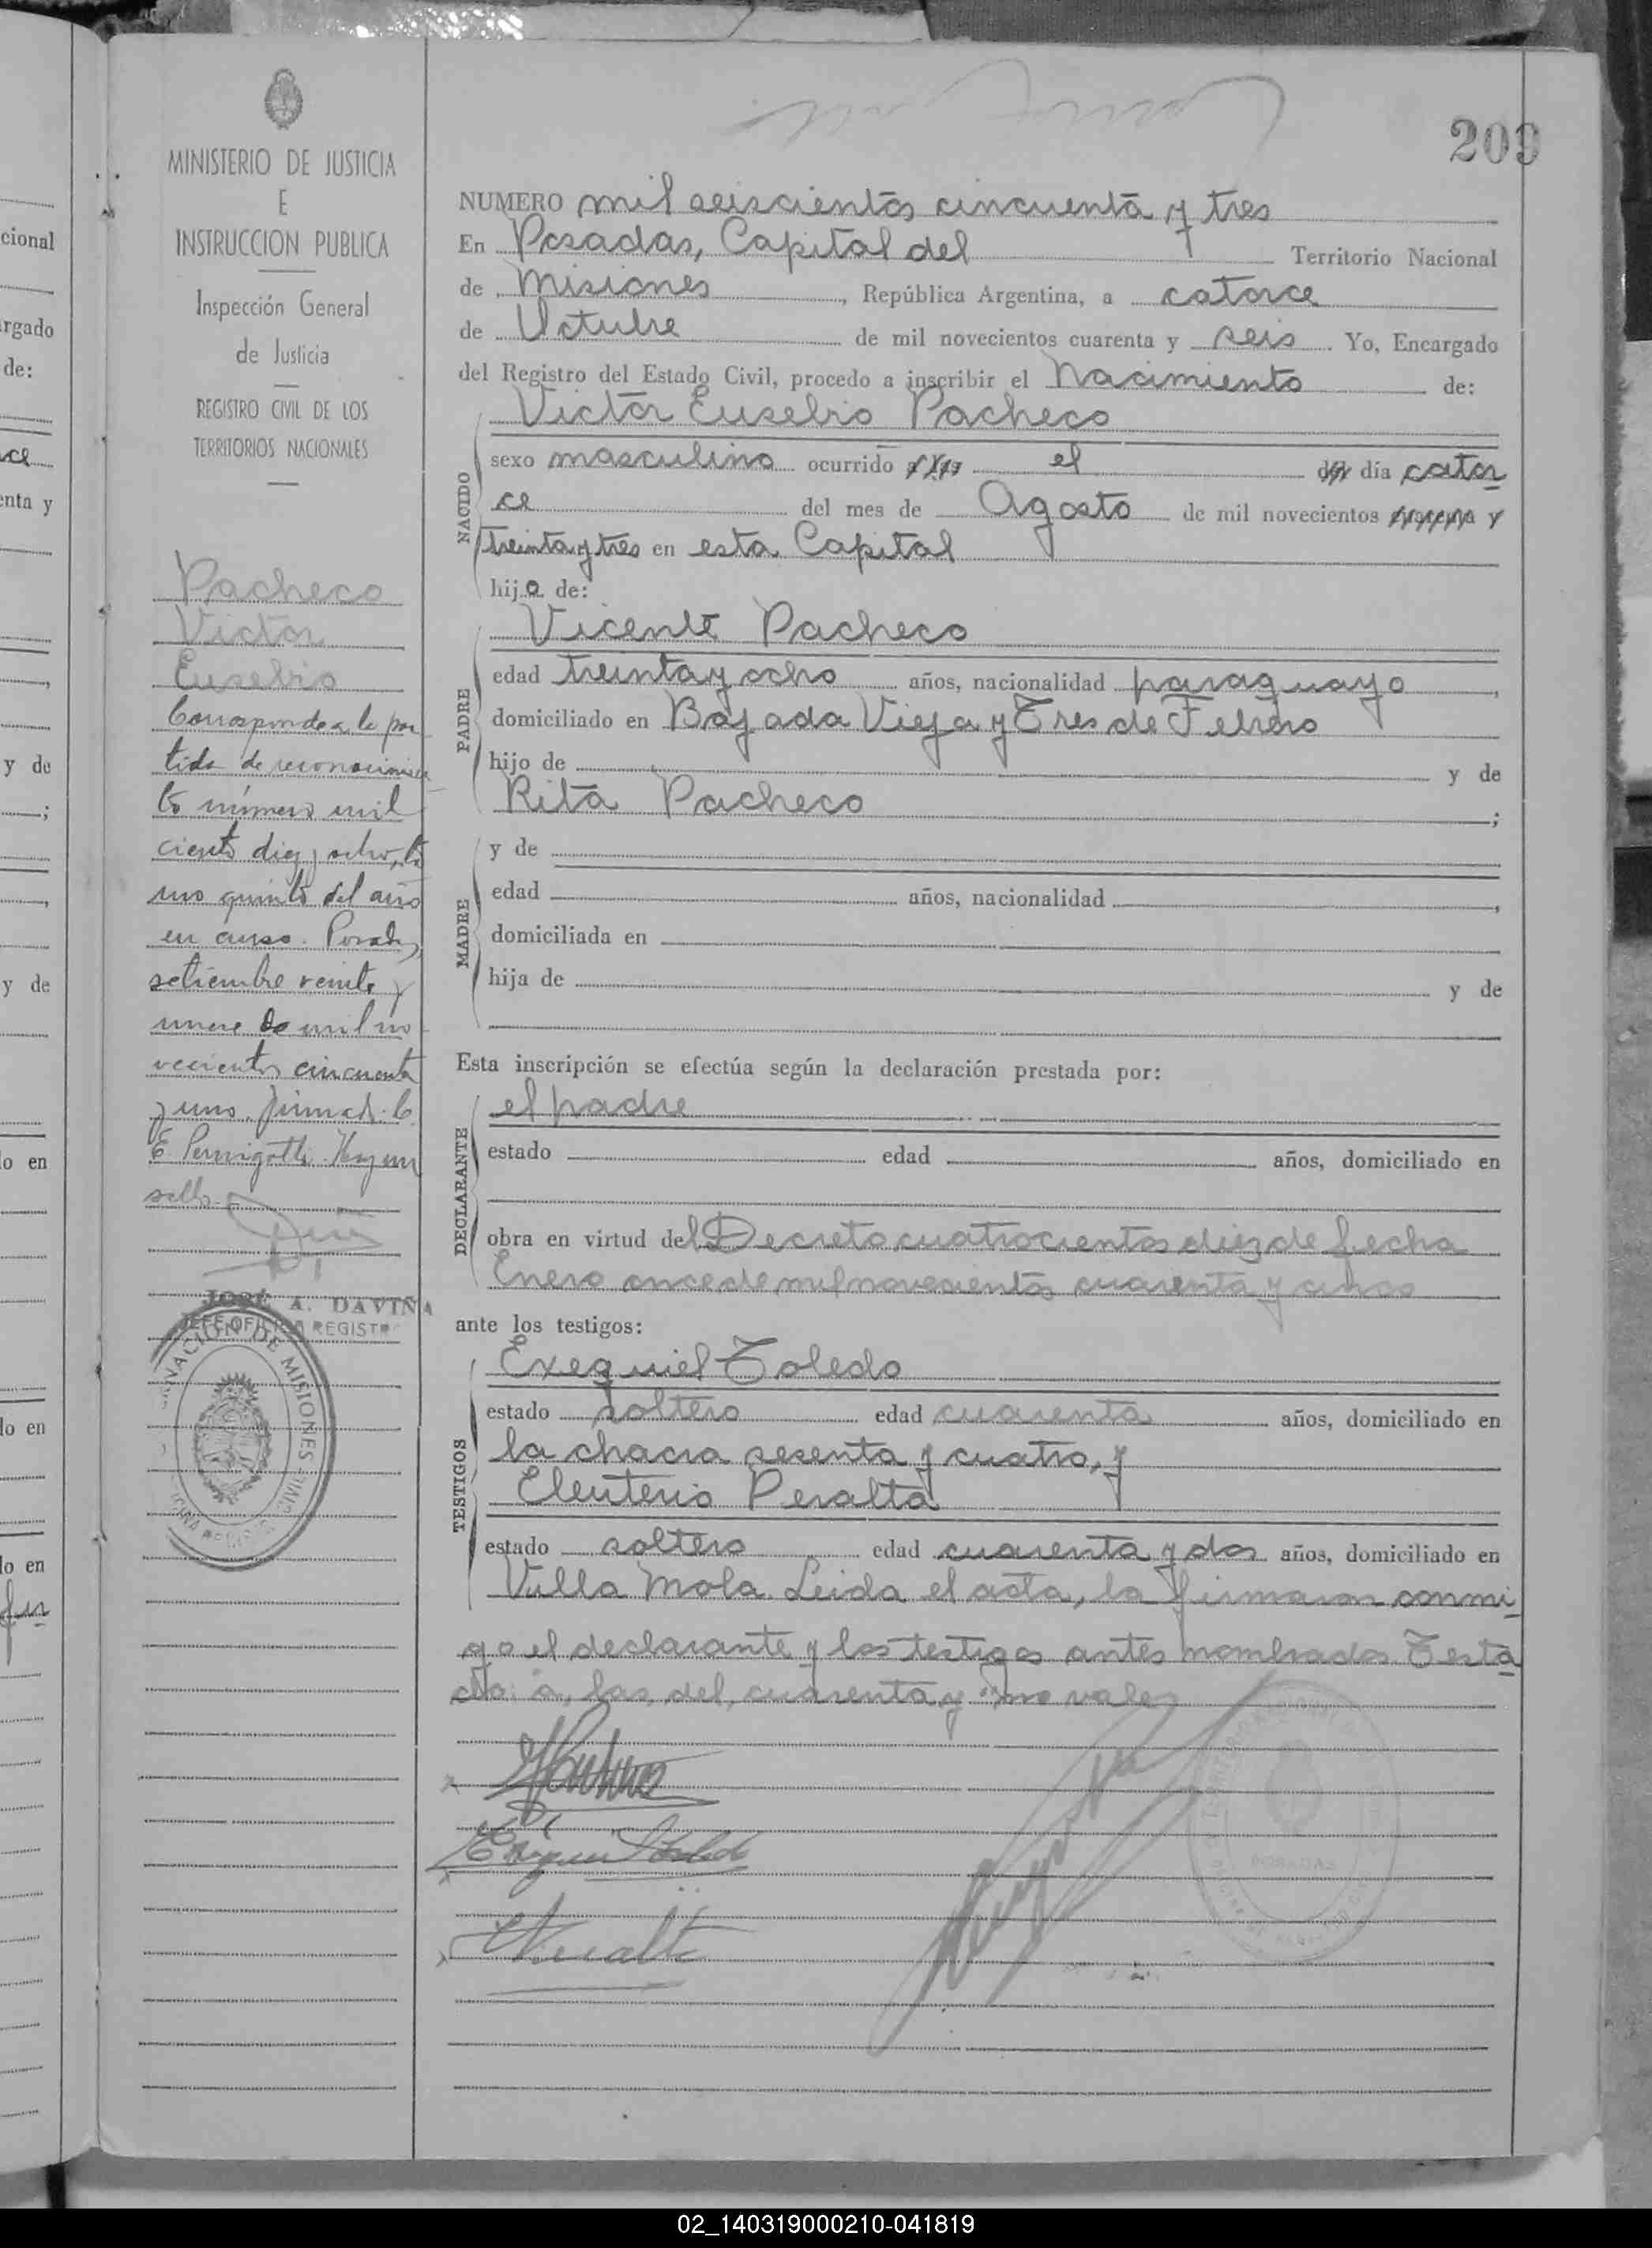 203
MINISTERIO DE JUSTICIA
E
INSTRUCCION PUBLICA
Inspección General
de Justicia
REGISTRO CIVIL DE LOS
TERRITORIOS NACIONALES
NUMERO mil seiscientos cincuenta y tres
En Posadas, Capital del Territorio Nacional
de Misiones, República Argentina, a catorce
de Octubre de mil novecientos cuarenta y seis. Yo, Encargado
del Registro del Estado Civil, procedo a inscribir el Nacimiento de:
Victor Eusebio Pacheco
NACIDO
sexo masculino ocurrido el día cator
ce del mes de Agosto de mil novecientos
treinta y tres en esta Capital
hijo de:
PADRE
Vicente Pacheco
edad treinta y ocho años, nacionalidad paraguayo,
domiciliado en Bajada Vieja y Tres de Febrero
hijo de y de
Rita Pacheco;
MADRE
y de
edad años, nacionalidad,
domiciliada en
hija de y de
Esta inscripción se efectúa según la declaración prestada por:
DECLARANTE
el padre
estado edad años, domiciliado en
obra en virtud del Decreto cuatrocientos diez de fecha
Enero once de mil novecientos cuarenta y cinco
ante los testigos:
TESTIGOS
Exequiel Toledo
estado soltero edad cuarenta años, domiciliado en
la chacra sesenta y cuatro, y
Eleuterio Peralta
estado soltero edad cuarenta y dos años, domiciliado en
Villa Mola. Leida el acta, la firmaron conmi
go el declarante y los testigos antes nombrados. Testa
do: a, las, del, cuarenta y: no vale
Pacheco
Victor
Eusebio
Corresponde a la par
tida de reconocimien
to número mil
ciento diez y ocho, to
mo quinto del año
en curso. Posadas,
setiembre veinte y
nueve de mil no
vecientos cincuenta
y uno. firmado: C.
E. Pernigotti. Hay un
sello.
JOSÉ A. DAVIÑA
JEFE OFICINA REGISTR
NACION DE MISIONES
POSADAS
cional
rgado
de:
ce
enta y
y de
y de
lo en
lo en
lo en
02_140319000210-041819